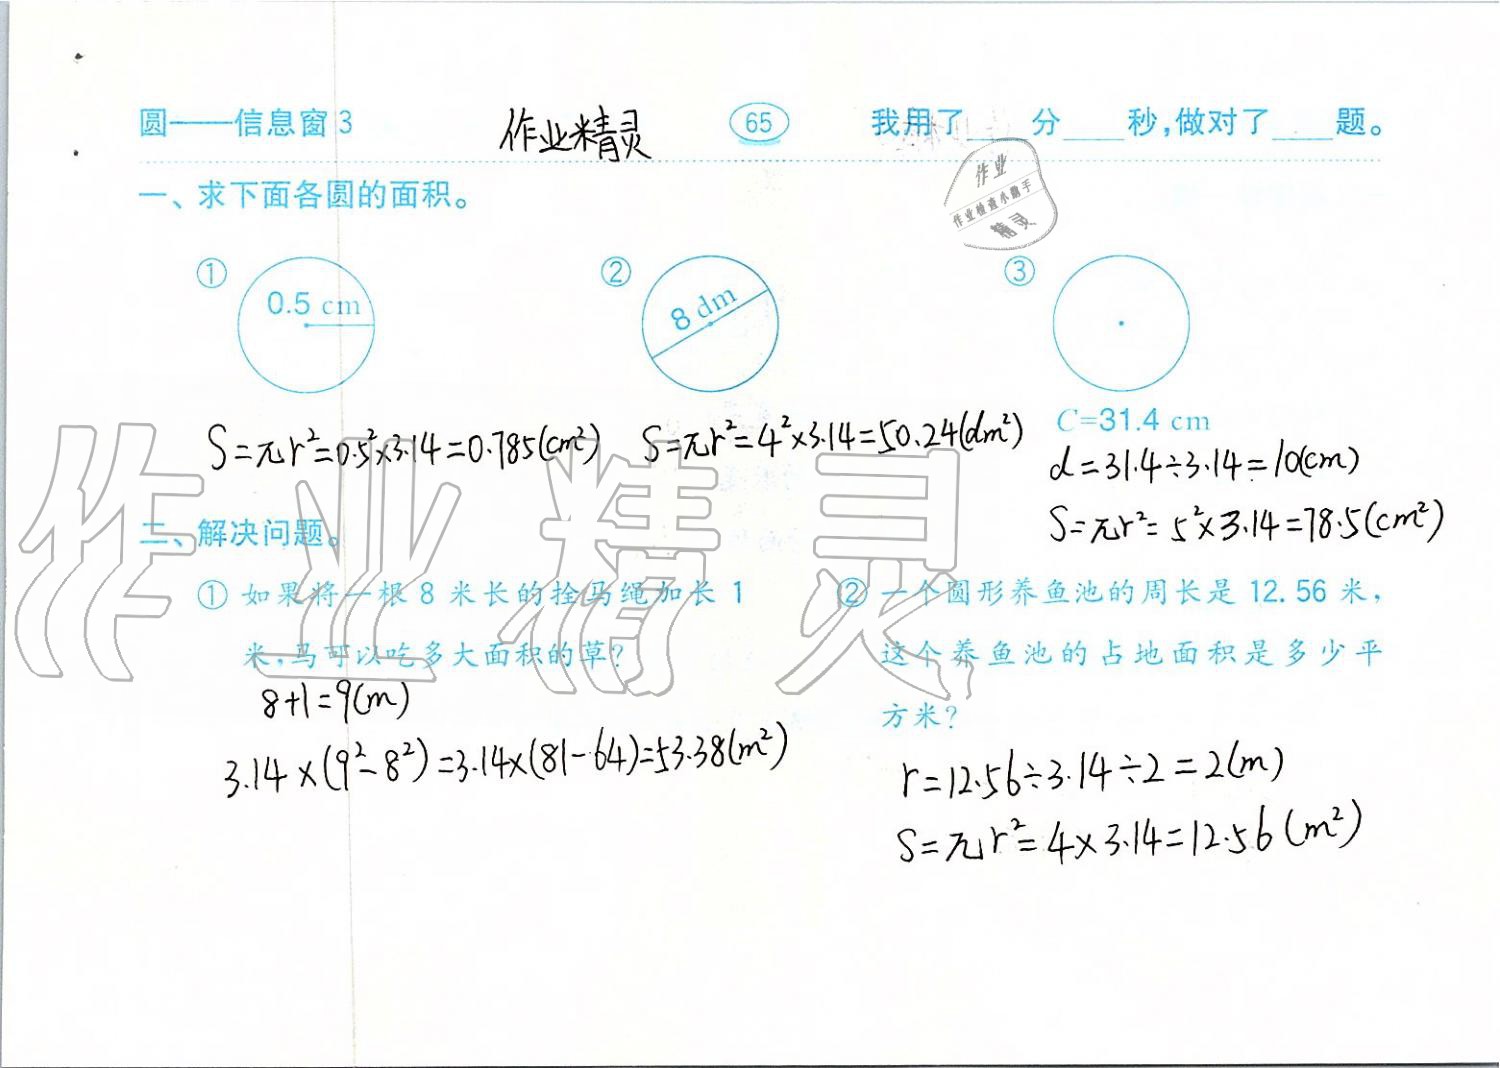 圆——信息窗3 作业精灵 65 我用了____分____秒,做对了____题。
一、求下面各圆的面积。
作业
作业检查小助手
精灵
① 0.5 cm ② 8 dm ③
C=31.4 cm
S=πr²=0.5²×3.14=0.785(cm²) S=πr²=4²×3.14=50.24(dm²)
d=31.4÷3.14=10(cm)
S=πr²=5²×3.14=78.5(cm²)
作业精灵
二、解决问题。
① 如果将一根8米长的拴马绳加长1
米,马可以吃多大面积的草?
8+1=9(m)
3.14×(9²-8²)=3.14×(81-64)=53.38(m²)
② 一个圆形养鱼池的周长是12.56米,
这个养鱼池的占地面积是多少平
方米?
r=12.56÷3.14÷2=2(m)
S=πr²=4×3.14=12.56(m²)